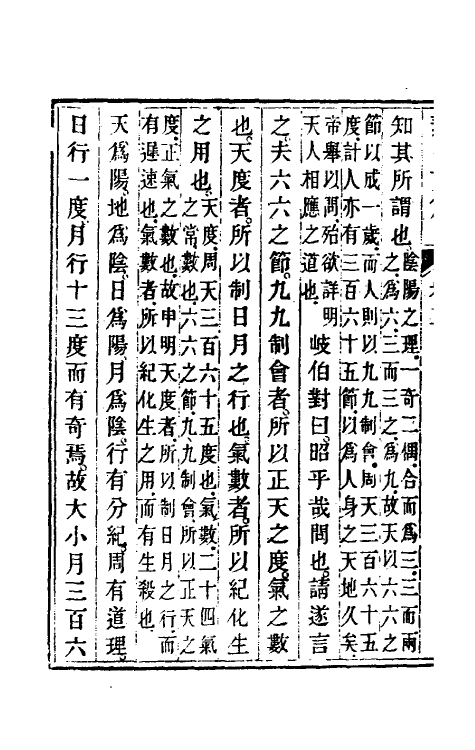 知其所謂也。陰陽之理。一奇二偶。合而爲三。三而兩
之。爲六。三而三之。爲九。故天以六六之
節以成一歲。而人則以九九制會。周天三百六十五
度。計人亦有三百六十五節。以爲人身之天地久矣。
帝舉以問殆欲詳明
天人相應之道也。
岐伯對曰。昭乎哉問也。請遂言
之。夫六六之節。九九制會者。所以正天之度。氣之數
也。天度者。所以制日月之行也。氣數者。所以紀化生
之用也。天度。周天三百六十五度也。氣數。二十四氣
之常數也。六六之節。九九制會。所以正天之
度。正氣之數也。故申明天度者。所以制日月之行。而
有遲速也。氣數者。所以紀化生之用。而有生殺也。
天爲陽。地爲陰。日爲陽。月爲陰。行有分紀。周有道理。
日行一度。月行十三度而有奇焉。故大小月三百六